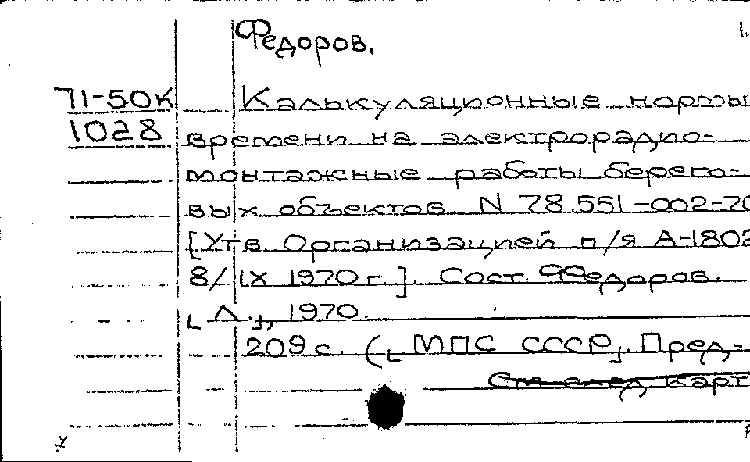 Федоров.
71-50к Калькуляционные нормы
1028 времени на электрорадио-
монтажные работы берего-
вых объектов N 78.551-002-70
[Утв. Организацией п/я А-1802
8/IX 1970 г.]. Сост. Федоров.
[Л.], 1970.
209 с. ([МПС СССР]. Пред-
См. след. карт